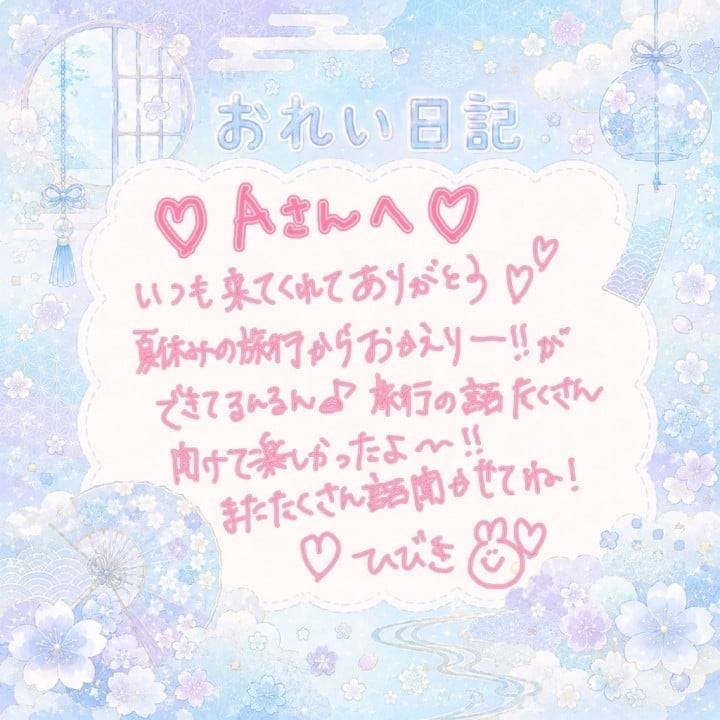 おれい日記
♡ Aさんへ ♡
いつも来てくれてありがとう♡♡
夏休みの旅行からおかえりー!!が
できてるんるん♪ 旅行の話たくさん
聞けて楽しかったよ〜!!
またたくさん話聞かせてね!
♡ ひびき ♡